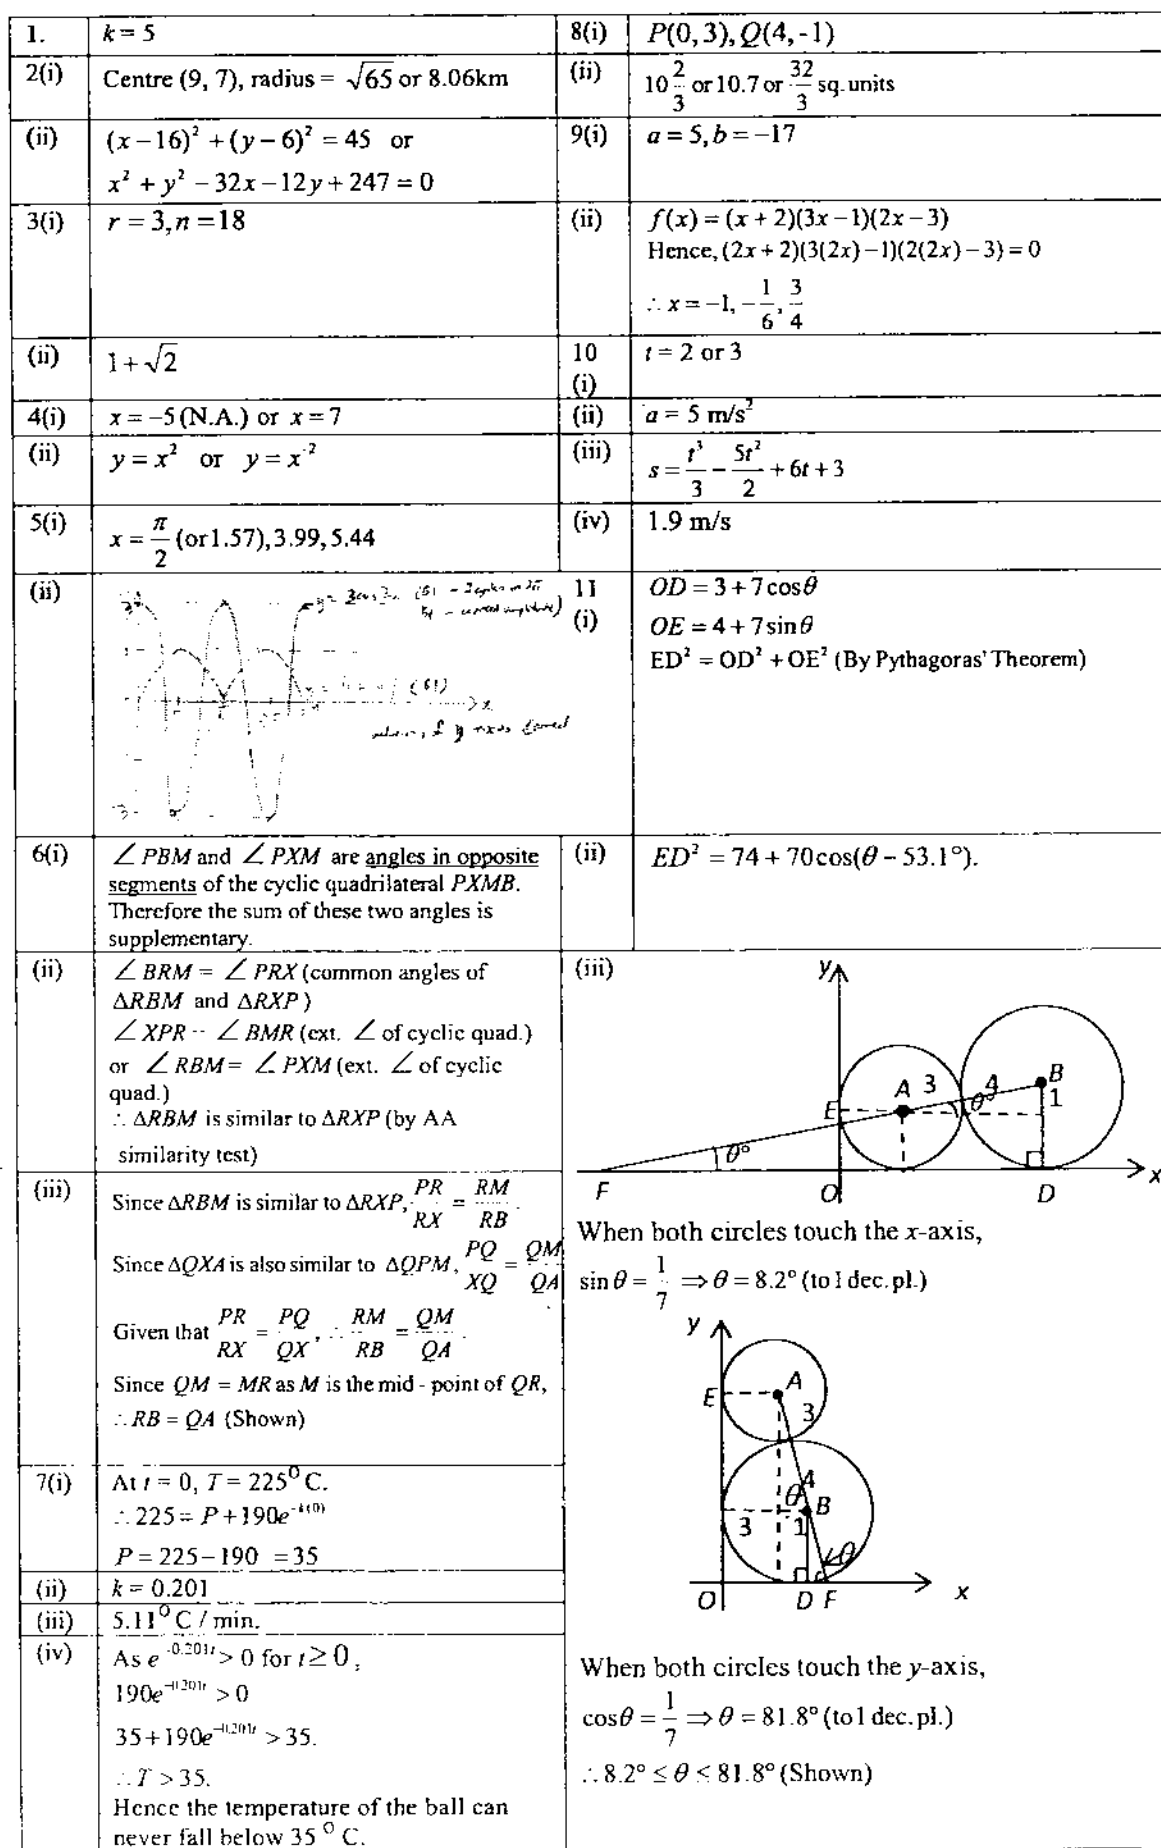 1. k = 5
2(i) Centre (9, 7), radius = √65 or 8.06km
(ii) (x − 16)² + (y − 6)² = 45 or
x² + y² − 32x − 12y + 247 = 0
3(i) r = 3, n = 18
(ii) 1 + √2
4(i) x = −5 (N.A.) or x = 7
(ii) y = x² or y = x⁻²
5(i) x = π/2 (or 1.57), 3.99, 5.44
(ii)
x
3
-3
6(i) ∠PBM and ∠PXM are angles in opposite
segments of the cyclic quadrilateral PXMB.
Therefore the sum of these two angles is
supplementary.
(ii) ∠BRM = ∠PRX (common angles of
ΔRBM and ΔRXP)
∠XPR -- ∠BMR (ext. ∠ of cyclic quad.)
or ∠RBM = ∠PXM (ext. ∠ of cyclic
quad.)
∴ ΔRBM is similar to ΔRXP (by AA
similarity test)
(iii) Since ΔRBM is similar to ΔRXP, PR/RX = RM/RB.
Since ΔQXA is also similar to ΔQPM, PQ/XQ = QM/QA
Given that PR/RX = PQ/QX, ∴ RM/RB = QM/QA.
Since QM = MR as M is the mid - point of QR,
∴ RB = QA (Shown)
7(i) At t = 0, T = 225⁰C.
∴ 225 = P + 190e^(-k(0))
P = 225 − 190 = 35
(ii) k = 0.201
(iii) 5.11⁰C / min.
(iv) As e^(-0.201t) > 0 for t ≥ 0,
190e^(-0.201t) > 0
35 + 190e^(-0.201t) > 35.
∴ T > 35.
Hence the temperature of the ball can
never fall below 35 ⁰C.
8(i) P(0, 3), Q(4, -1)
(ii) 10 2/3 or 10.7 or 32/3 sq. units
9(i) a = 5, b = −17
(ii) f(x) = (x + 2)(3x − 1)(2x − 3)
Hence, (2x + 2)(3(2x) − 1)(2(2x) − 3) = 0
∴ x = −1, −1/6, 3/4
10
(i) t = 2 or 3
(ii) a = 5 m/s²
(iii) s = t³/3 − 5t²/2 + 6t + 3
(iv) 1.9 m/s
11
(i) OD = 3 + 7cosθ
OE = 4 + 7sinθ
ED² = OD² + OE² (By Pythagoras' Theorem)
(ii) ED² = 74 + 70cos(θ − 53.1°).
(iii)
y
A 3 4 B
E θ° 1
θ°
F O D x
When both circles touch the x-axis,
sinθ = 1/7 ⇒ θ = 8.2° (to 1 dec. pl.)
y
E A
3
4
θ B
3 1
θ
O D F x
When both circles touch the y-axis,
cosθ = 1/7 ⇒ θ = 81.8° (to 1 dec. pl.)
∴ 8.2° ≤ θ ≤ 81.8° (Shown)